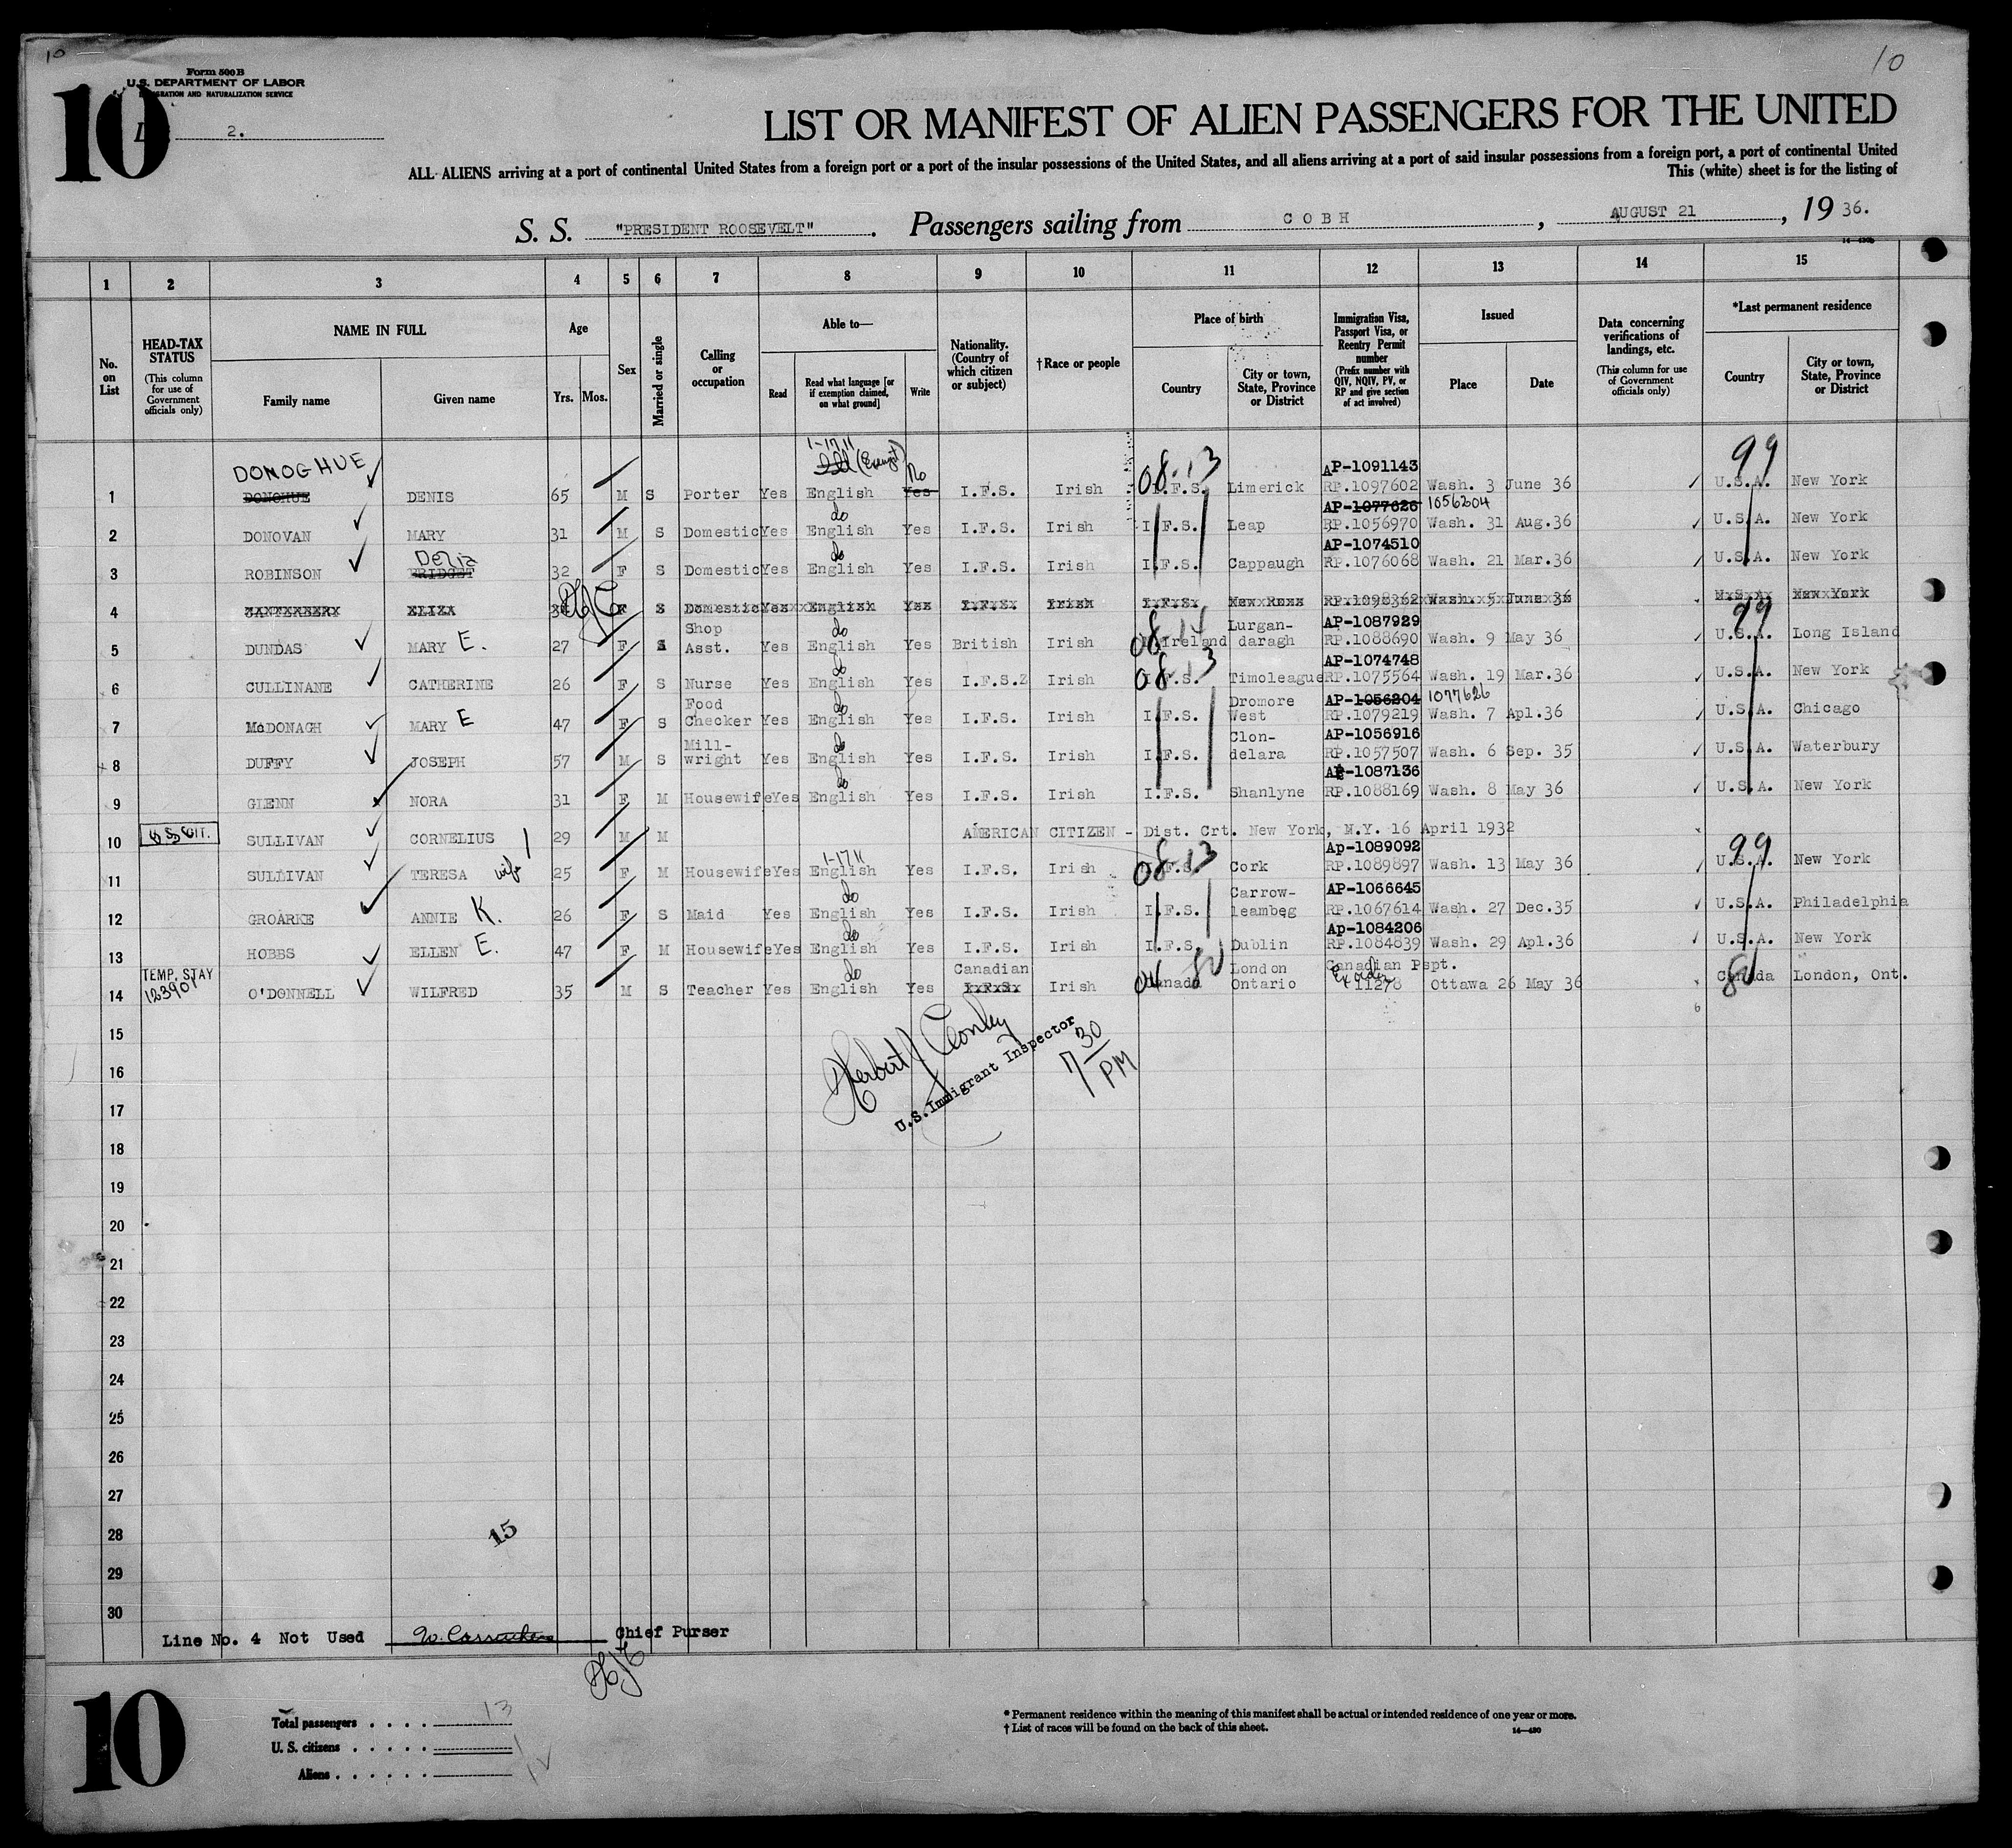 10
10
Form 500 B
U.S. DEPARTMENT OF LABOR
IMMIGRATION AND NATURALIZATION SERVICE
10
2.
LIST OR MANIFEST OF ALIEN PASSENGERS FOR THE UNITED
ALL ALIENS arriving at a port of continental United States from a foreign port or a port of the insular possessions of the United States, and all aliens arriving at a port of said insular possessions from a foreign port, a port of continental United
This (white) sheet is for the listing of
S. S. "PRESIDENT ROOSEVELT". Passengers sailing from COBH, AUGUST 21, 1936.
1 2 3 4 5 6 7 8 9 10 11 12 13 14 15
No. on List
HEAD-TAX STATUS (This column for use of Government officials only)
NAME IN FULL Family name Given name
Age Yrs. Mos.
Sex
Married or single
Calling or occupation
Able to— Read Read what language [or if exemption claimed, on what ground] Write
Nationality. (Country of which citizen or subject)
† Race or people
Place of birth Country City or town, State, Province or District
Immigration Visa, Passport Visa, or Reentry Permit number (Prefix number with QIV, NQIV, PV, or RP and give section of act involved)
Issued Place Date
Data concerning verifications of landings, etc. (This column for use of Government officials only)
*Last permanent residence Country City or town, State, Province or District
DONOGHUE 1-1711 (Exempt) No 08-13 AP-1091143 99
1 DONOHUE DENIS 65 M S Porter Yes English Yes I.F.S. Irish I.F.S. Limerick RP.1097602 Wash. 3 June 36 U.S.A. New York
do AP-1077626 1056204
2 DONOVAN MARY 31 M S Domestic Yes English Yes I.F.S. Irish I.F.S. Leap RP.1056970 Wash. 31 Aug.36 U.S.A. New York
Delia do AP-1074510
3 ROBINSON BRIDGET 32 F S Domestic Yes English Yes I.F.S. Irish I.F.S. Cappaugh RP.1076068 Wash. 21 Mar.36 U.S.A. New York
4 CANTERBERY ELIZA F S Domestic Yes English Yes I.F.S. Irish I.F.S. New Ross RP.1098362 Wash. 5 June 36 U.S.A. New York
Shop do 08-14 Lurgan- AP-1087929 99
5 DUNDAS MARY E. 27 F S Asst. Yes English Yes British Irish N.Ireland daragh RP.1088690 Wash. 9 May 36 U.S.A. Long Island
do 08-13 AP-1074748
6 CULLINANE CATHERINE 26 F S Nurse Yes English Yes I.F.S. Irish I.F.S. Timoleague RP.1075564 Wash. 19 Mar.36 U.S.A. New York
Food do Dromore AP-1056204 1077626
7 McDONAGH MARY E 47 F S Checker Yes English Yes I.F.S. Irish I.F.S. West RP.1079219 Wash. 7 Apl.36 U.S.A. Chicago
Mill- do Clon- AP-1056916
8 DUFFY JOSEPH 57 M S wright Yes English Yes I.F.S. Irish I.F.S. delara RP.1057507 Wash. 6 Sep. 35 U.S.A. Waterbury
do AP-1087136
9 GLENN NORA 31 F M Housewife Yes English Yes I.F.S. Irish I.F.S. Shanlyne RP.1088169 Wash. 8 May 36 U.S.A. New York
10 US CIT. SULLIVAN CORNELIUS 29 M M AMERICAN CITIZEN - Dist. Crt. New York, N.Y. 16 April 1932
1-1711 08-13 Ap-1089092 99
11 SULLIVAN TERESA wife 25 F M Housewife Yes English Yes I.F.S. Irish I.F.S. Cork RP.1089897 Wash. 13 May 36 U.S.A. New York
do Carrow- AP-1066645
12 GROARKE ANNIE K. 26 F S Maid Yes English Yes I.F.S. Irish I.F.S. leambeg RP.1067614 Wash. 27 Dec.35 U.S.A. Philadelphia
do Ap-1084206
13 HOBBS ELLEN E. 47 F M Housewife Yes English Yes I.F.S. Irish I.F.S. Dublin RP.1084839 Wash. 29 Apl.36 U.S.A. New York
TEMP. STAY do Canadian 04 London Canadian Pspt.
14 123901 O'DONNELL WILFRED 35 M S Teacher Yes English Yes I.F.S. Irish Canada Ontario 11278 Ottawa 26 May 36 Canada London, Ont.
15
16
17
18
19
20
21
22
23
24
25
26
27
28
29
30
Herbert J Conley
U.S. Immigrant Inspector
7 30 PM
15
Line No. 4 Not Used Chief Purser
HJC
10
Total passengers . . . . 13
U. S. citizens . . . . . 1
Aliens . . . . . .
* Permanent residence within the meaning of this manifest shall be actual or intended residence of one year or more.
† List of races will be found on the back of this sheet.
14—430